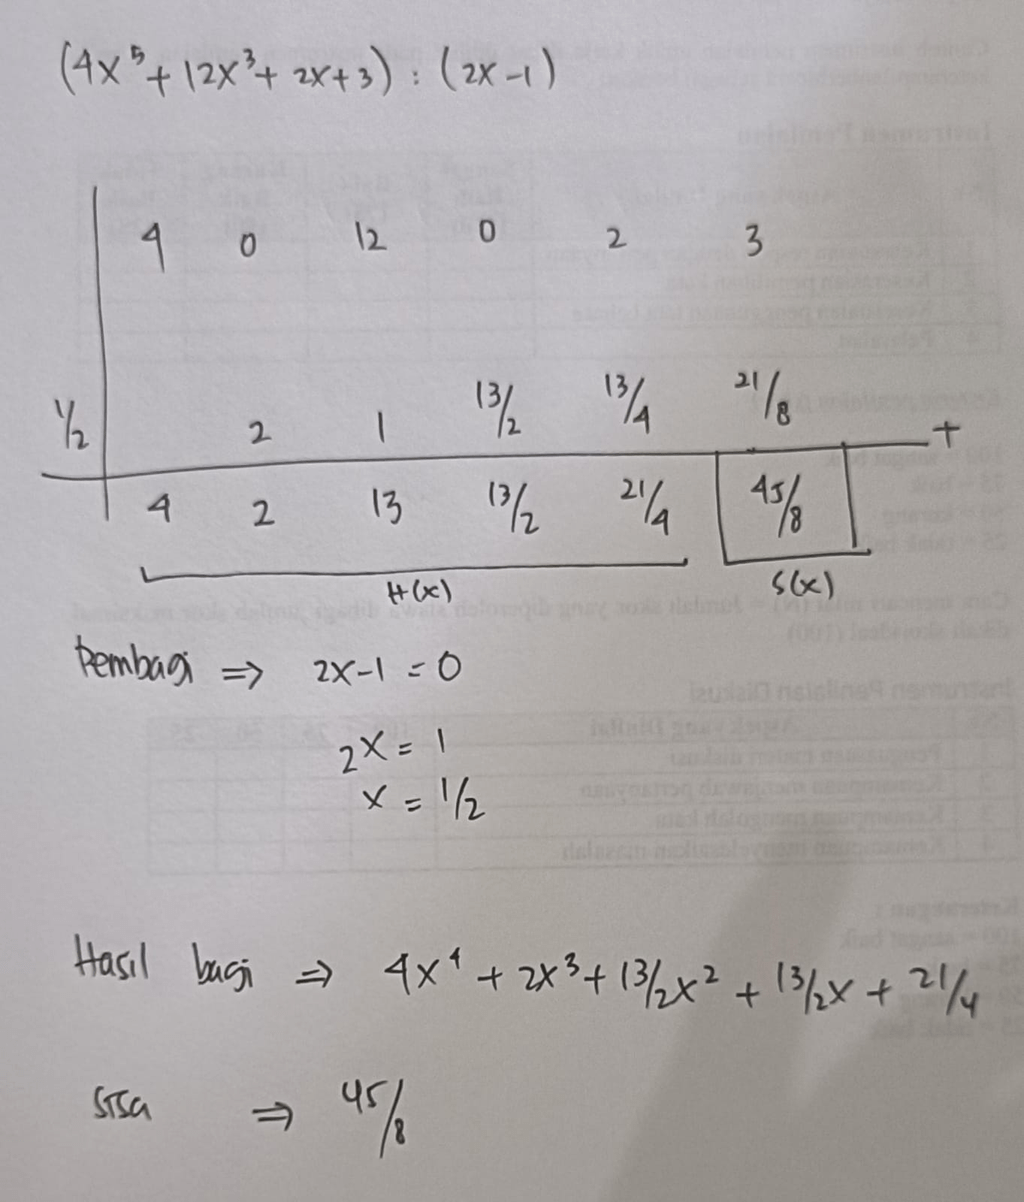 (4x⁵ + 12x³ + 2x + 3) : (2x - 1)
4 0 12 0 2 3
1/2 2 1 13/2 13/4 21/8 +
4 2 13 13/2 21/4 45/8
H(x) S(x)
Pembagi ⇒ 2x - 1 = 0
2x = 1
x = 1/2
Hasil bagi ⇒ 4x⁴ + 2x³ + 13/2x² + 13/2x + 21/4
sisa ⇒ 45/8